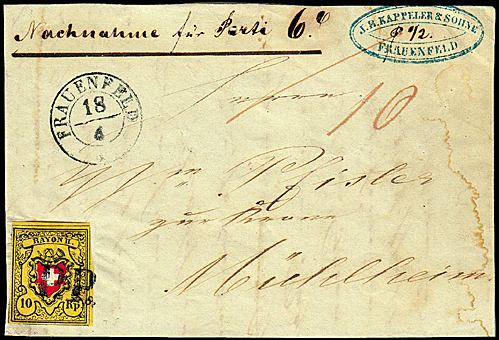 Nachnahme für Porti 6.
J. H. KAPPELER & SOHNE
FRAUENFELD
FRAUENFELD
18
10
Pfister
zur Krone
Mühlheim
RAYON II.
10 Rp